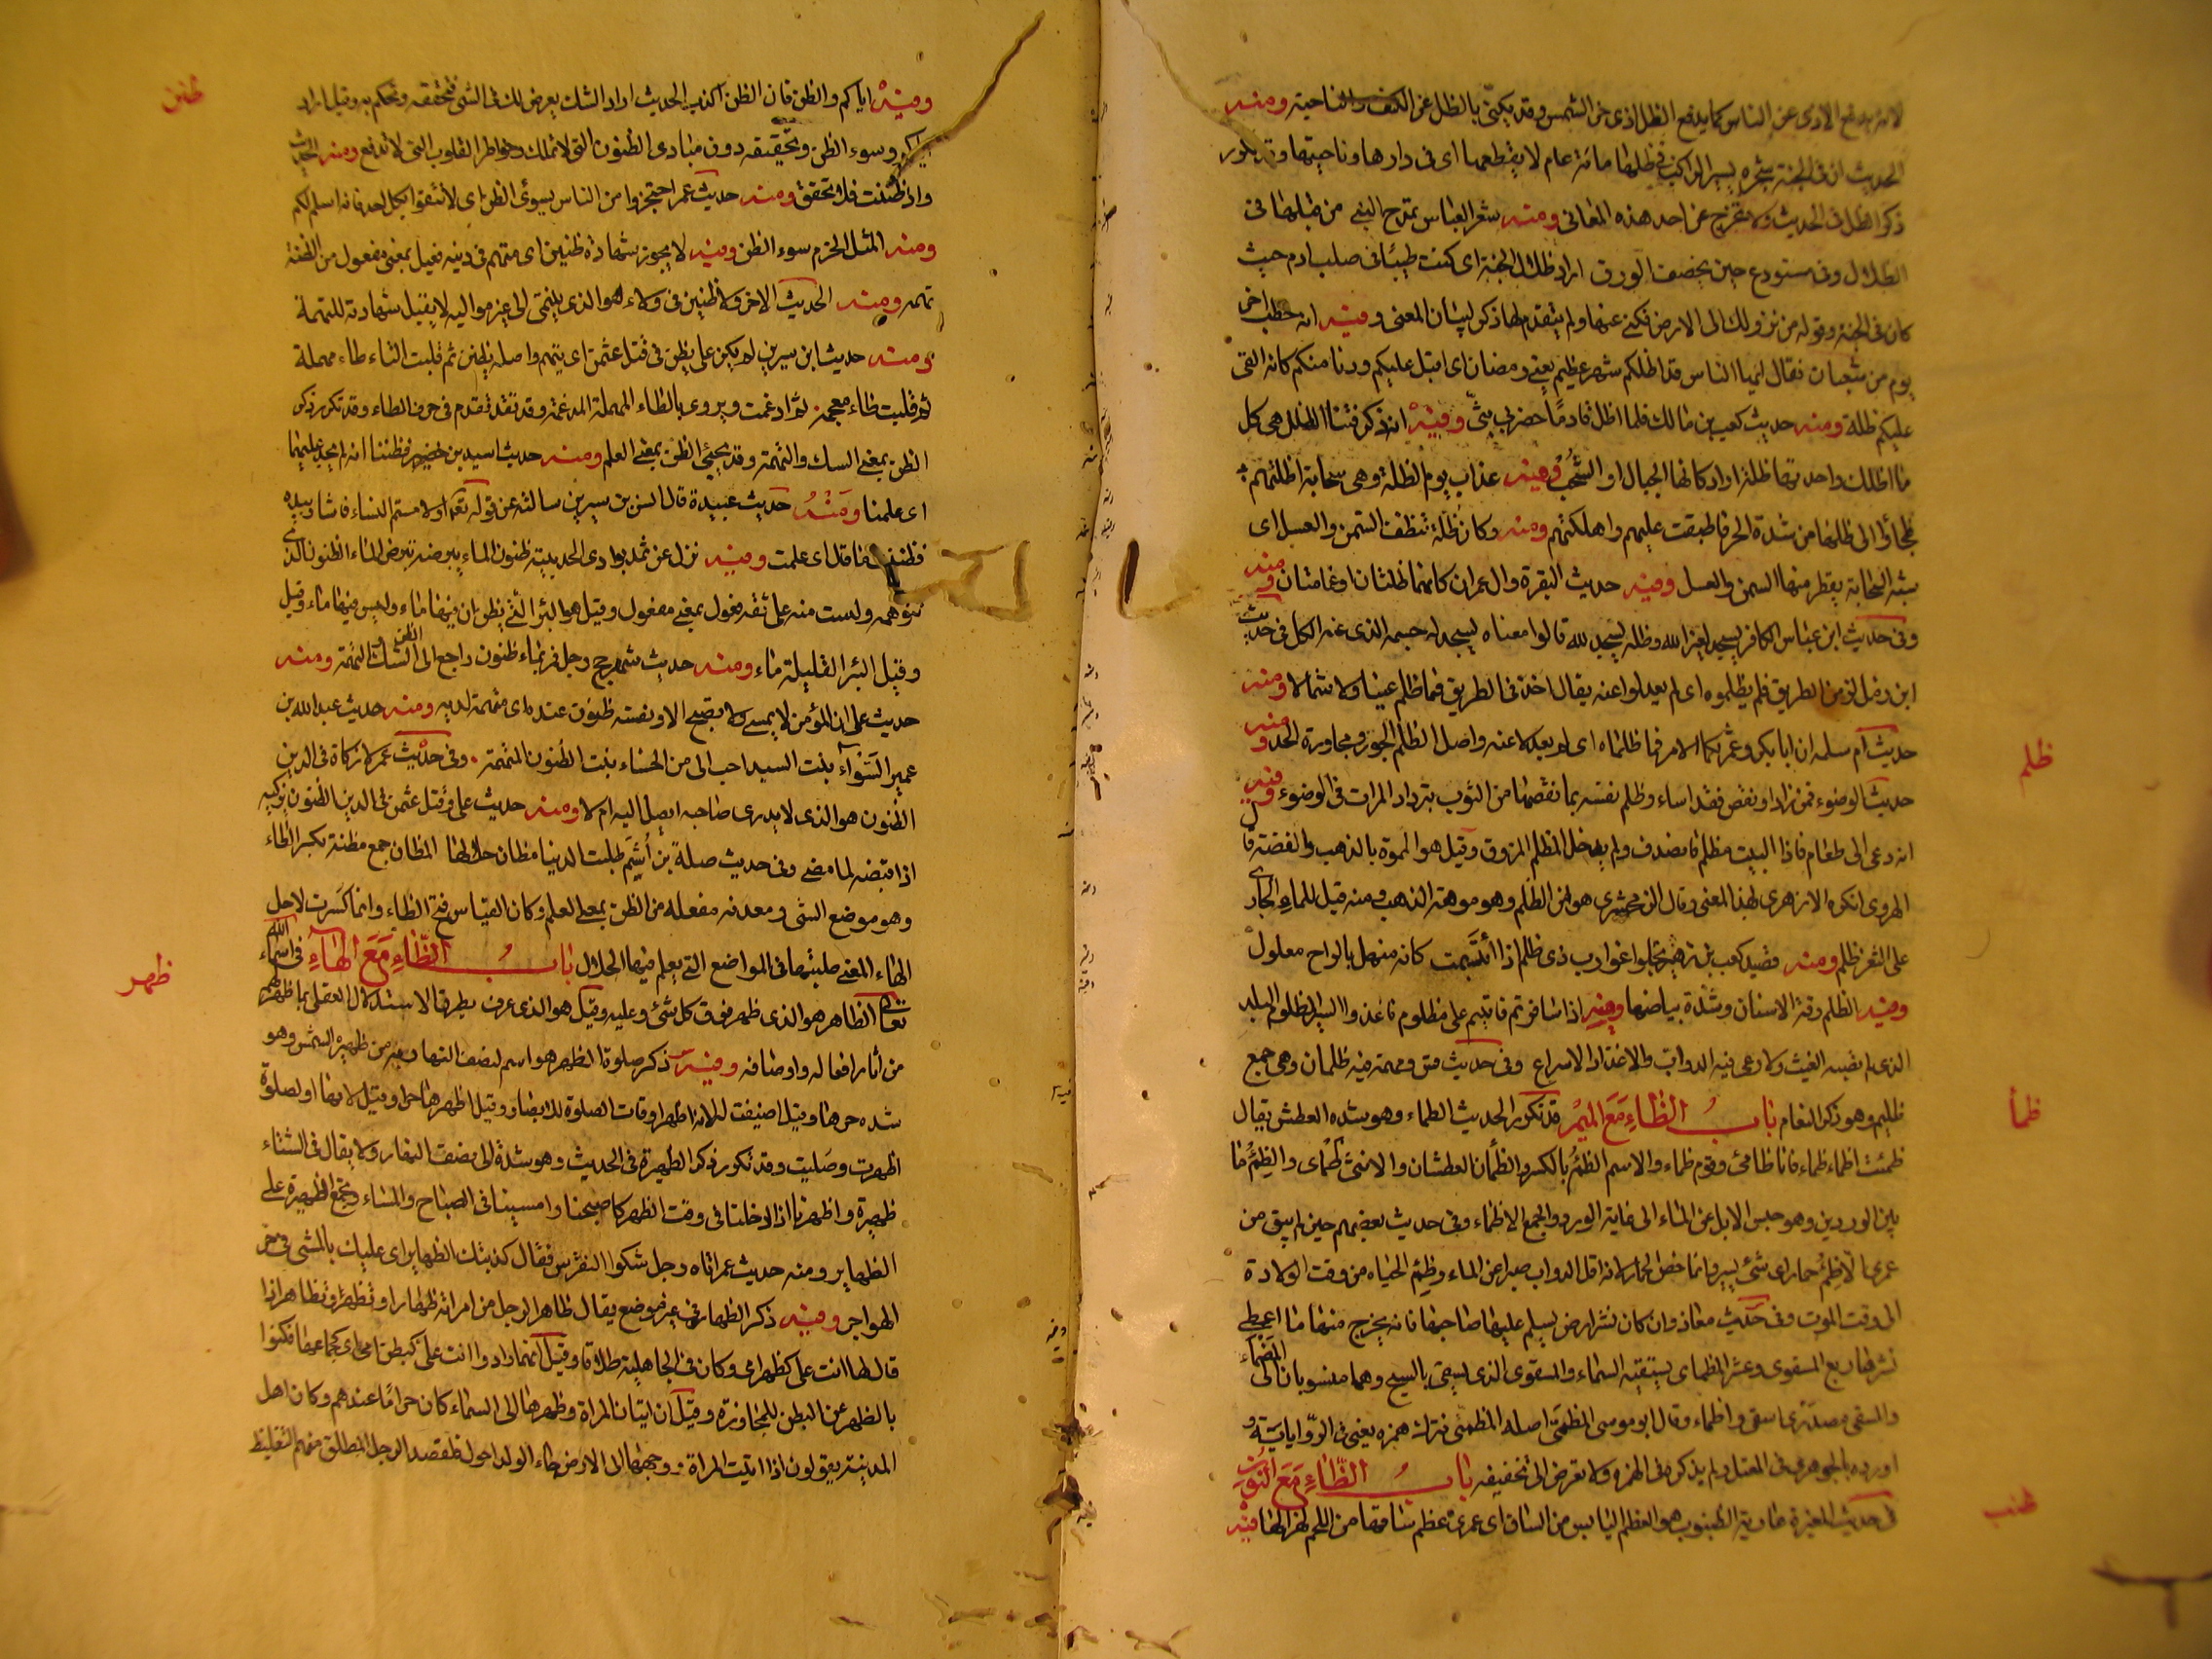 لانه يدفع الاذى عن الناس كما يدفع الظل اذى حر الشمس وقد يكنى بالظل عن الكنف والناحية ومنه
الحديث ان فى الجنة شجرة يسير الراكب فى ظلها مائة عام لا يقطعها اى فى دارها وناحيتها وقد تكرر
ذكر الظل فى الحديث ولا يخرج عن احد هذه المعانى ومنه شعر العباس يمتدح النبى من قبلها طبت فى
الظلال وفى مستودع حين يخصف الورق اراد ظلال الجنة اى كنت طيبا فى صلب ادم حيث
كان فى الجنة وقوله من قبل نزولك الى الارض فكنى عنها ولم يتقدم لها ذكر لبيان المعنى وفيه انه خطب اخر
يوم من شعبان فقال ايها الناس قد اظلكم شهر عظيم يعنى رمضان اى اقبل عليكم ودنا منكم كانه القى
عليكم ظله ومنه حديث كعب بن مالك فلما اظل قادما حضرنى بثى وفيه انه ذكر فتنا كالظلل هى كل
ما اظلك واحدتها ظلة اراد كانها الجبال او السحب ومنه عذاب يوم الظلة وهى سحابة اظلتهم
فلجأوا الى ظلها من شدة الحر فاطبقت عليهم واهلكتهم ومنه وكان ظلة تنطف السمن والعسل اى
شبه السحابة يقطر منها السمن والعسل ومنه حديث البقرة وال عمران كانهما ظلتان او غمامتان ومنه
وفى حديث ابن عباس الكافر يسجد لغير الله وظله يسجد لله قالوا معناه يسجد له جسمه الذى عنه الظل فى حديث
ابن زمل لزموا الطريق فلم يظلموه اى لم يعدلوا عنه يقال اخذ فى الطريق فما ظلم يمينا ولا شمالا ومنه
حديث ام سلمه ان ابابكر وعمر ثكما الامر فما ظلماه اى لم يعدلا عنه واصل الظلم الجور ومجاوزة الحد ومنه
حديث الوضوء فمن زاد او نقص فقد اساء وظلم نفسه بما نقصها من الثوب بترداد المرات فى الوضوء وفيه
انه دعى الى طعام فاذا البيت مظلم فانصرف ولم يدخل المظلم المزوق وقيل هو المموه بالذهب والفضة قال
الهروى انكره الازهرى بهذا المعنى وقال الزمخشرى هو من الظلم وهو موهة الذهب ومنه قيل للماء الجارى
على الثغر ظلم ومنه قصيد كعب بن زهير تجلوا غوارب ذى ظلم اذا ابتسمت كانه منهل بالراح معلول
وفيه الظلم رقة الاسنان وشدة بياضها وفيه اذا سافرتم فاتيتم على مظلوم فاغذوا السير المظلوم البلد
الذى لم يصبه الغيث ولا رعى فيه الدواب والاغذاذ الاسراع وفى حديث قس ومهمه فيه ظلمان وهى جمع
ظليم وهو ذكر النعام باب الظاء مع الميم قد تكرر الحديث الظماء وهو شده العطش يقال
ظمئت اظماء ظماء فانا ظامئ وقوم ظماء والاسم الظمئ بالكسر والظمان العطشان والانثى ظماى والظمئ ما
بين الوردين وهو حبس الابل عن الماء الى غاية الورد والجمع الاظماء وفى حديث بعضهم حين لم يبق من
عمرى الا ظمئ حمار اى شئ يسير وانما خص الحمار لانه اقل الدواب صبرا عن الماء وظمئ الحياه من وقت الولادة
الى وقت الموت وفى حديث معاذ وان كان نشر ارض يسلم عليها صاحبها فانه يخرج منها ما اعطى
نشرها ربع المسقوى وعشر المظماى يستقيه السماء والمسقوى الذى يسقى بالسيح وهما منسوبان الى المظماء
والمسقى مصدرى اسقى واظماء وقال ابو موسى المظمى اصله المظمئى فترك همزه يعنى فى الرواية و
اورده الجوهرى فى المعتل ولم يذكره فى الهمزه ولا تعرض الى تخفيفه باب الظاء مع النون
فى حديث المغيرة عارية الظنبوب هو العظم اليابس من الساق اى عرى عظم ساقها من اللحم لهزالها فيه
ظلم
ظمأ
ظنب
ظنن
ومنه اياكم والظن فان الظن اكذب الحديث اراد الشك يعرض لك فى الشئ فتحققه وتحكم به وقيل اراد
اياكم وسوء الظن وتحقيقه دون مبادى الظنون التى لا تملك وخواطر القلوب التى لا تدفع ومنه الحديث
واذا ظننت فلا تحقق ومنه حديث عمر احتجزوا من الناس بسوئ الظن اى لا تثقوا بكل احد فانه اسلم لكم
ومنه المثل الحزم سوء الظن وفيه لا يجوز شهادة ظنين اى متهم فى دينه فعيل بمعنى مفعول من الظنة
تهمه ومنه الحديث الاخر ولا ظنين فى ولاء هو الذى ينتمى الى غير مواليه لا يقبل شهادته للتهمة
ومنه حديث ابن سيرين لم يكن على يظن فى قتل عثمن اى يتهم واصله يظتن ثم قلبت التاء طاء مهملة
ثم قلبت ظاء معجمه ثم ادغمت ويروى بالطاء المهملة المدغمة وقد تقدم فى حرف الطاء وقد تكرر ذكر
الظن بمعنى الشك والتهمة وقد يجئ الظن بمعنى العلم ومنه حديث اسيد بن حضير فظننا انه لم يجد عليهما
اى علمنا ومنه حديث عبيدة قال انس بن سيرين سالته عن قوله تعالى اولامستم النساء فاشار بيده
فظننت ما قال اى علمت وفيه نزل عن ثمد بوادى الحديبية ظنون الماء يتبرضه تبرض الماء الظنون الذى
تتوهمه ولست منه على ثقه فعول بمعنى مفعول وقيل هو البئر التى يظن ان فيها ماء وليس فيها ماء وقيل
وقيل البئر القليلة ماء ومنه حديث شهر حج رجل فمر بماء ظنون راجع الى الظن والشك التهمة ومنه
حديث على ان المؤمن لا يمسى ولا يصبح الا ونفسه ظنون عنده اى متهمة لديه ومنه حديث عبد الله بن
عمير السوآء بنت السيد احب الى من الحسناء بنت الظنون المتهمة وفى حديث عمر لا زكاة فى الدين
الظنون هو الذى لا يدرى صاحبه ايصل اليه ام لا ومنه حديث على وقيل عثمن فى الدين الظنون يزكيه
اذا قبضه لما مضى وفى حديث صلة بن اشيم طلبت الدنيا مظان حلالها المظان جمع مظنة بكسر الظاء
وهو موضع الشئ ومعدنه مفعله من الظن بمعنى العلم وكان القياس فتح الظاء وانما كسرت لاجل
الهاء المعنى طلبتها فى المواضع التى يعلم فيها الحلال باب الظاء مع الهاء فى اسماء الله
تعالى الظاهر هو الذى ظهر فوق كل شئ وعليه وقيل هو الذى عرف بطرق الاستدلال العقلى بما ظهر لهم
من اثار افعاله واوصافه وفيه ذكر صلوة الظهر هو اسم لنصف النهار سمى به من ظهيرة الشمس وهو
شده حرها وقيل اضيفت اليه لانه اظهر اوقات الصلوة للابصار وقيل اظهرها حرا وقيل لانها اول صلوة
اظهرت وصليت وقد تكرر ذكر الظهيرة فى الحديث وهو شدة الحر نصف النهار ولا يقال فى الشتاء
ظهيرة واظهرنا اذا دخلنا فى وقت الظهر كاصبحنا وامسينا فى الصباح والمساء وتجمع الظهيرة على
الظهاير ومنه حديث عمر اتاه رجل شكوا النقرس فقال كذبتك الظهاير اى عليك بالمشى فى حر
الهواجر وفيه ذكر الظهار فى غير موضع يقال ظاهر الرجل من امراته ظهارا وتظهر وتظاهر اذا
قال لها انت على كظهر امى وكان فى الجاهلية طلاقا وقيل انهم ارادوا انت على كبطن امى اى كجماعها فكنوا
بالظهر عن البطن للمجاورة وقيل ان اتيان المراة وظهرها الى السماء كان حراما عندهم وكان اهل
المدينة يقولون اذا اتيت المراة ووجهها الى الارض جاء الولد احول فلقصد الرجل المطلق منهم التغليظ
ظهر